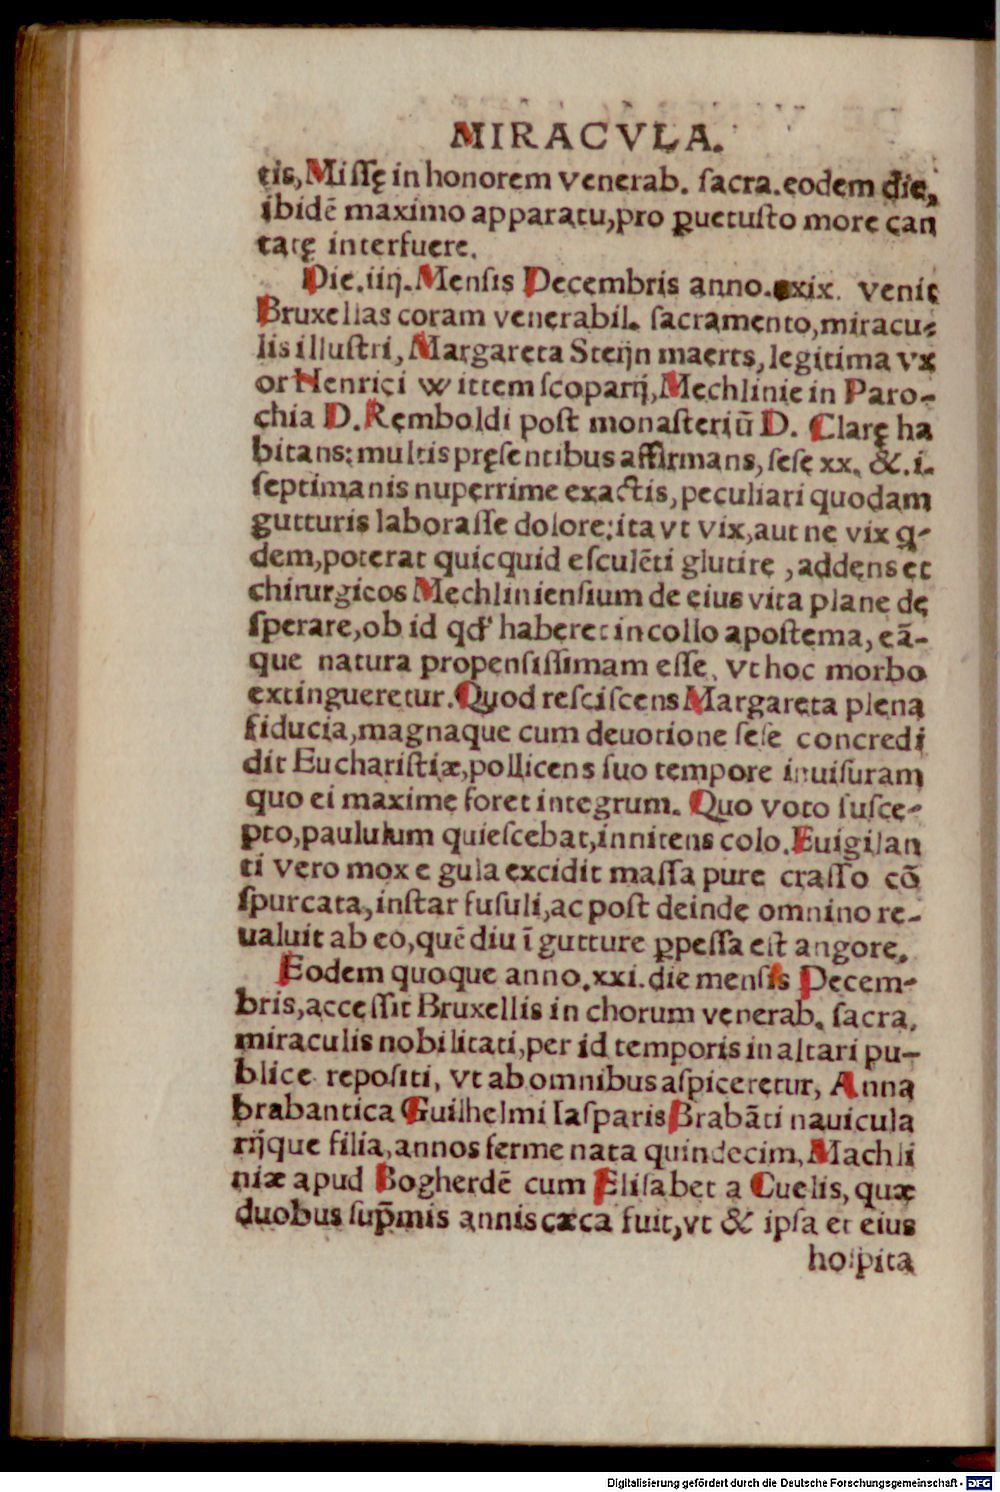 MIRACVLA.
tis, Missę in honorem venerab. sacra. eodem die,
ibidē maximo apparatu, pro ꝑuetusto more can
tatę interfuere.
Die. iiij. Mensis Decembris anno. xxix. venit
Bruxellas coram venerabil. sacramento, miracu-
lis illustri, Margareta Steijn maerts, legitima vx
or Henrici wittem scoparij, Mechlinie in Paro-
chia D. Remboldi post monasteriū D. Clarę ha
bitans: multis pręsentibus affirmans, sese xx. & .i.
septimanis nuperrime exactis, peculiari quodam
gutturis laborasse dolore: ita vt vix, aut ne vix q-
dem, poterat quicquid esculēti glutire , addens et
chirurgicos Mechliniensium de eius vita plane de
sperare, ob id qđ haberet in collo apostema, eā-
que natura propensissimam esse, vt hoc morbo
extingueretur. Quod resciscens Margareta plena
fiducia, magnaque cum deuotione sese concredi
dit Eucharistiæ, pollicens suo tempore inuisuram
quo ei maxime foret integrum. Quo voto susce-
pto, paululum quiescebat, innitens colo. Euigilan
ti vero mox e gula excidit massa pure crasso cō
spurcata, instar fusuli, ac post deinde omnino re-
ualuit ab eo, quē diu ī gutture ꝑpessa est angore.
Eodem quoque anno. xxi. die mensis Decem-
bris, accessit Bruxellis in chorum venerab. sacra.
miraculis nobilitati, per id temporis in altari pu-
blice repositi, vt ab omnibus aspiceretur, Anna
brabantica Guilhelmi Iasparis Brabāti nauicula
rijque filia, annos ferme nata quindecim, Machli
niæ apud Bogherdē cum Elisabet a Cuelis, quæ
duobus sup̄mis annis cæca fuit, vt & ipsa et eius
hospita
Digitalisierung gefördert durch die Deutsche Forschungsgemeinschaft - DFG